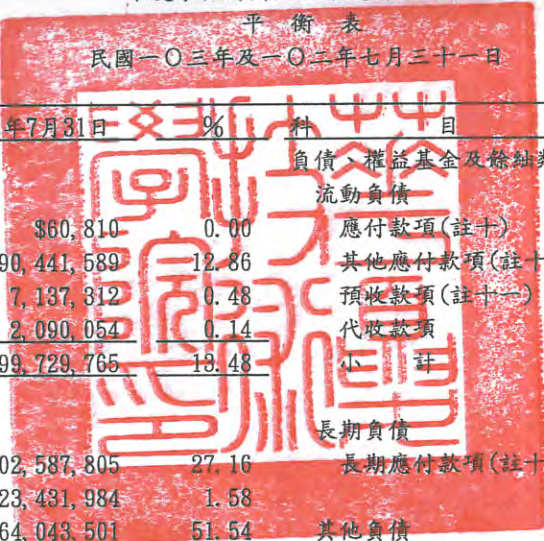 平 衡 表
民國一○三年及一○二年七月三十一日
年7月31日 % 科 目
負債、權益基金及餘絀
流動負債
$60,810 0.00 應付款項(註十)
90,441,589 12.86 其他應付款項(註十
7,137,312 0.48 預收款項(註十一)
2,090,054 0.14 代收款項
99,729,765 13.48 小 計
長期負債
02,587,805 27.16 長期應付款項(註十
23,431,984 1.58
64,043,501 51.54 其他負債